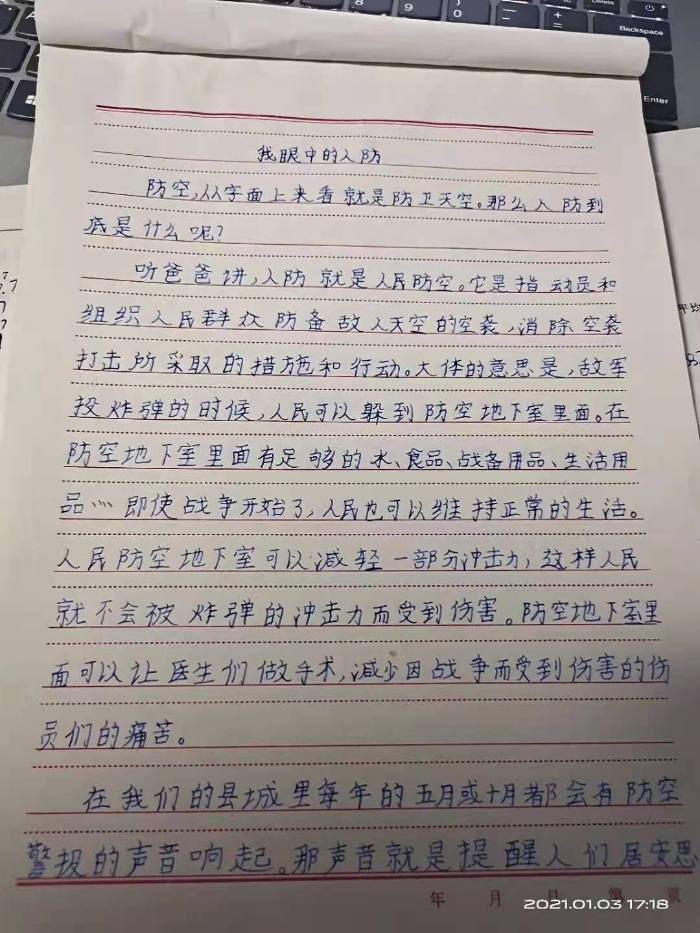 我眼中的人防
防空,从字面上来看就是防卫天空。那么人防到
底是什么呢?
听爸爸讲,人防就是人民防空。它是指动员和
组织人民群众防备敌人天空的空袭,消除空袭
打击所采取的措施和行动。大体的意思是,敌军
投炸弹的时候,人民可以躲到防空地下室里面。在
防空地下室里面有足够的水、食品、战备用品、生活用
品…… 即使战争开始了,人民也可以维持正常的生活。
人民防空地下室可以减轻一部分冲击力,这样人民
就不会被炸弹的冲击力而受到伤害。防空地下室里
面可以让医生们做手术,减少因战争而受到伤害的伤
员们的痛苦。
在我们的县城里每年的五月或十月都会有防空
警报的声音响起。那声音就是提醒人们居安思
年 月 日 第 页
2021.01.03 17:18
Backspace
Enter
Delete
平均